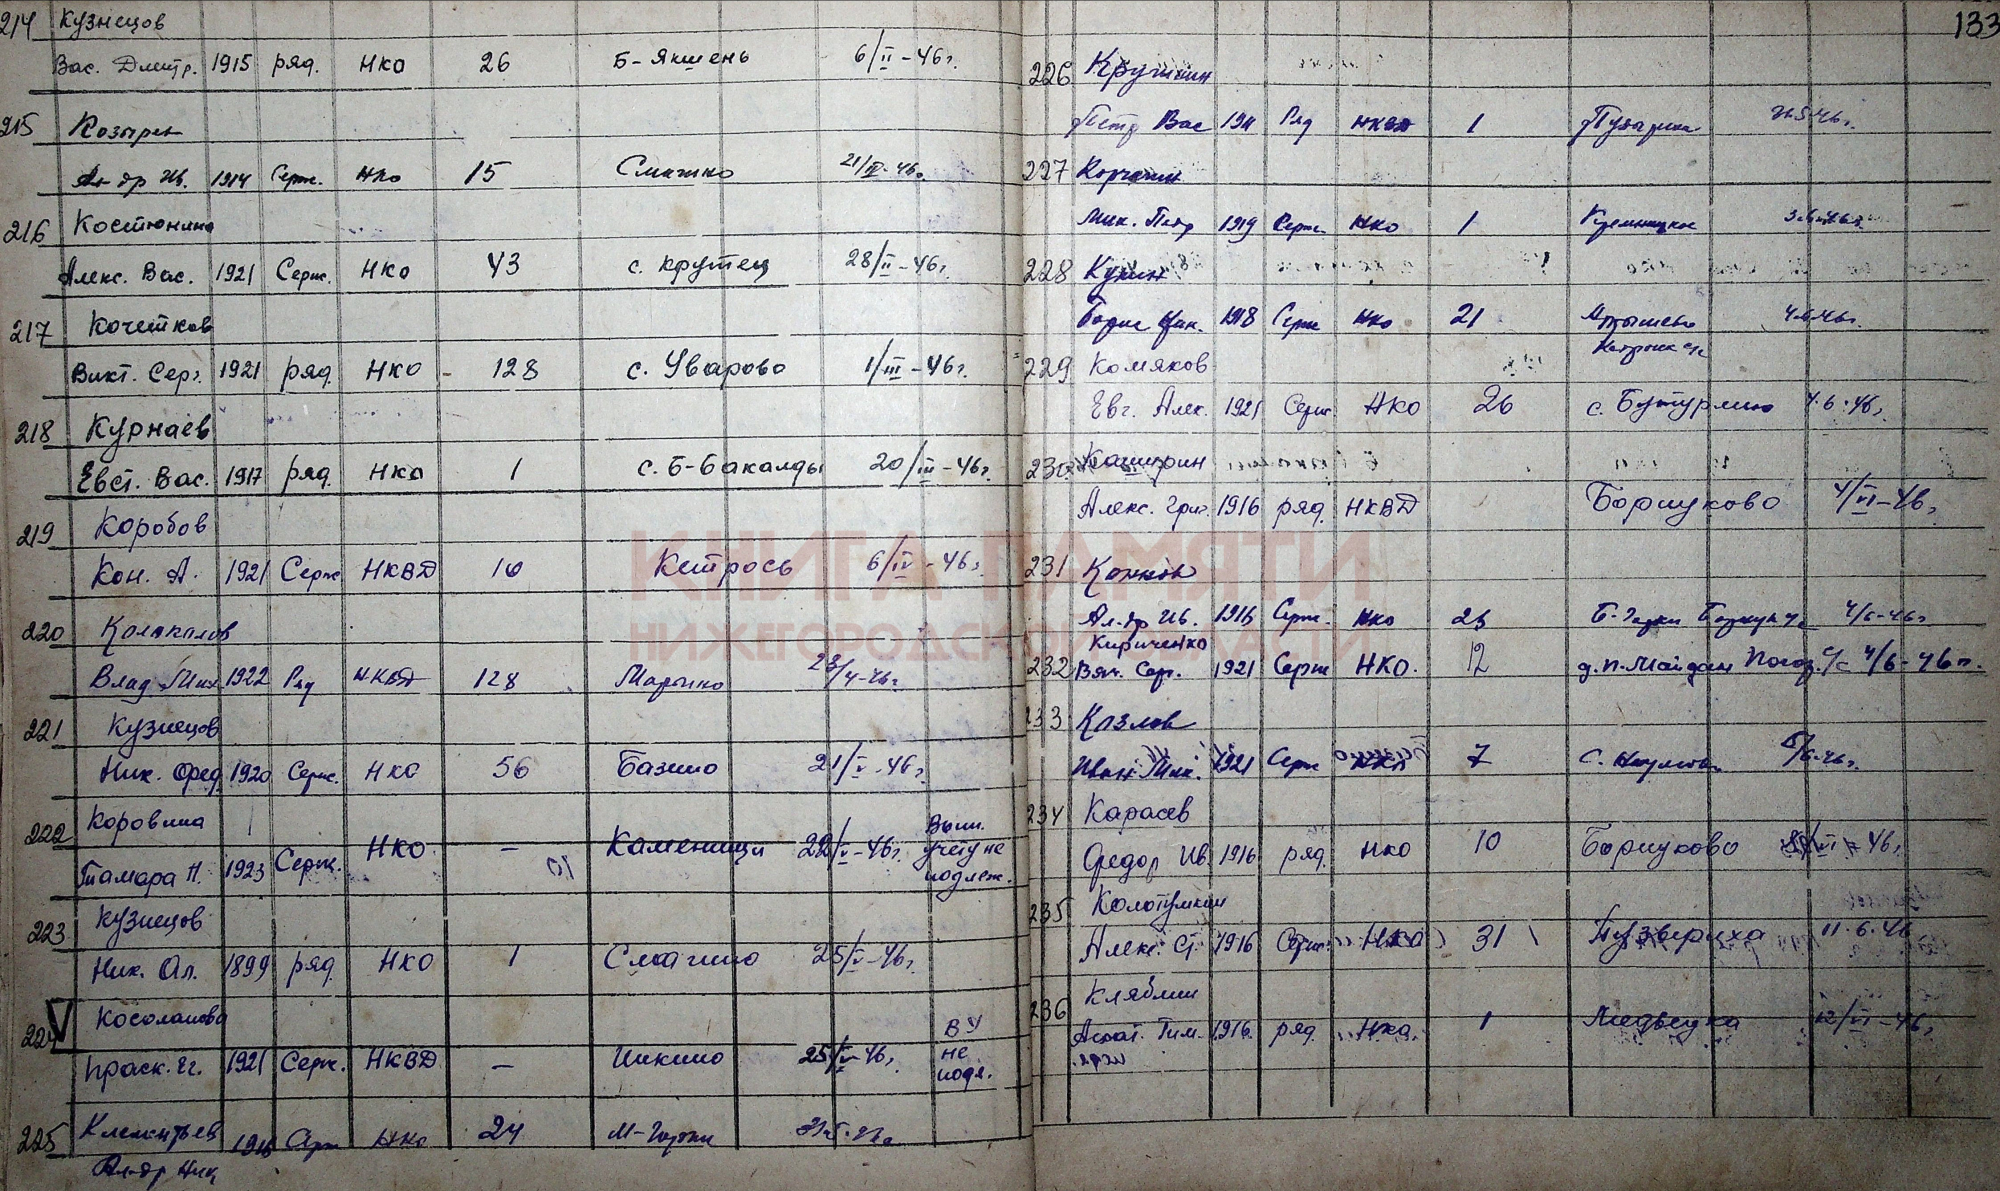 133
214 Кузнецов
Вас. Дмитр. 1915 ряд. НКО 26 Б-Якшень 6/II-46г.
215 Козырев
Ал-др Ив. 1914 Серж. НКО 15 21/III-46г.
216 Костюнина
Алекс. Вас. 1921 Серж. НКО 43 с. Крутец 28/II-46г.
217 Кочетков
Викт. Серг. 1921 ряд. НКО - 128 с. Уварово 1/III-46г.
218 Курнаев
Евст. Вас. 1917 ряд. НКО 1 с. Б-Бакалды 20/III-46г.
219 Коробов
Кон. А. 1921 Серж НКВД 10 Кетрось 6/IV-46г.
220 Колопалов
Влад Мих 1922 Ряд НКВД 128
221 Кузнецов
Ник. Фред 1920 Серж. НКО 56 Базино 21/V-46г.
222 Коровина
Тамара Н. 1923 Серж. НКО - Каменищи 22/V-46г. Воин. учету не подлеж.
223 Кузнецов
Ник. Ал. 1899 ряд. НКО 1 25/V-46г.
224 Косолапова
Праск. Ег. 1921 Серж. НКВД - Инкино 25/V-46г. ВУ не подл.
225 Клементьев
Серж НКО 24 М-Горки
Ал-др Ник
226
Петр Вас 1911 Ряд НКВД 1
227 Корчагин
Мих. Петр 1919 Серж. НКО 1
228 Кукин
1918 Серж НКО 21 4.6.46г.
229 Комяков
Евг. Алек. 1921 Серж НКО 26 с. Бутурлино 4.6.46г.
230 Каширин
Алекс. Григ. 1916 ряд. НКВД Борцуково 4/VI-46г.
231 Конков
Ал-др Ив. 1916 Серж. НКО 23 4/6-46г.
Кириченко
232 Вяч. Серг. 1921 Серж НКО. 12 д. П.-Майдан Погоз. с/с 4/6-46г.
233 Козлов
Иван Мих. 1921 Серж НКО 7 с. Наумово 5/6.46г.
234 Карасев
Федор Ив. 1916 ряд. НКО 10 Борцуково VI-46г.
235 Колотушкин
Алекс. Ст. 1916 Серж. НКО 31 Пузвериха 11.6.46
236 Кляблин
Тим. 1916 ряд НКО 1 Медведка 12/VI-46г.
КНИГА ПАМЯТИ
НИЖЕГОРОДСКОЙ ОБЛАСТИ